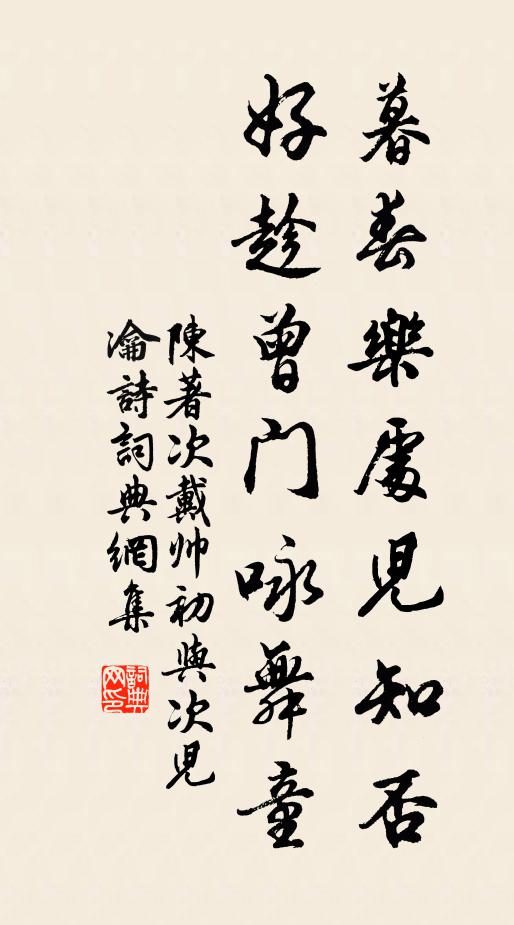 暮春樂處兒知否
好趁曾門咏舞童
陳著次戴帅初與次兒
瀹詩詞典網集
詞典
网印